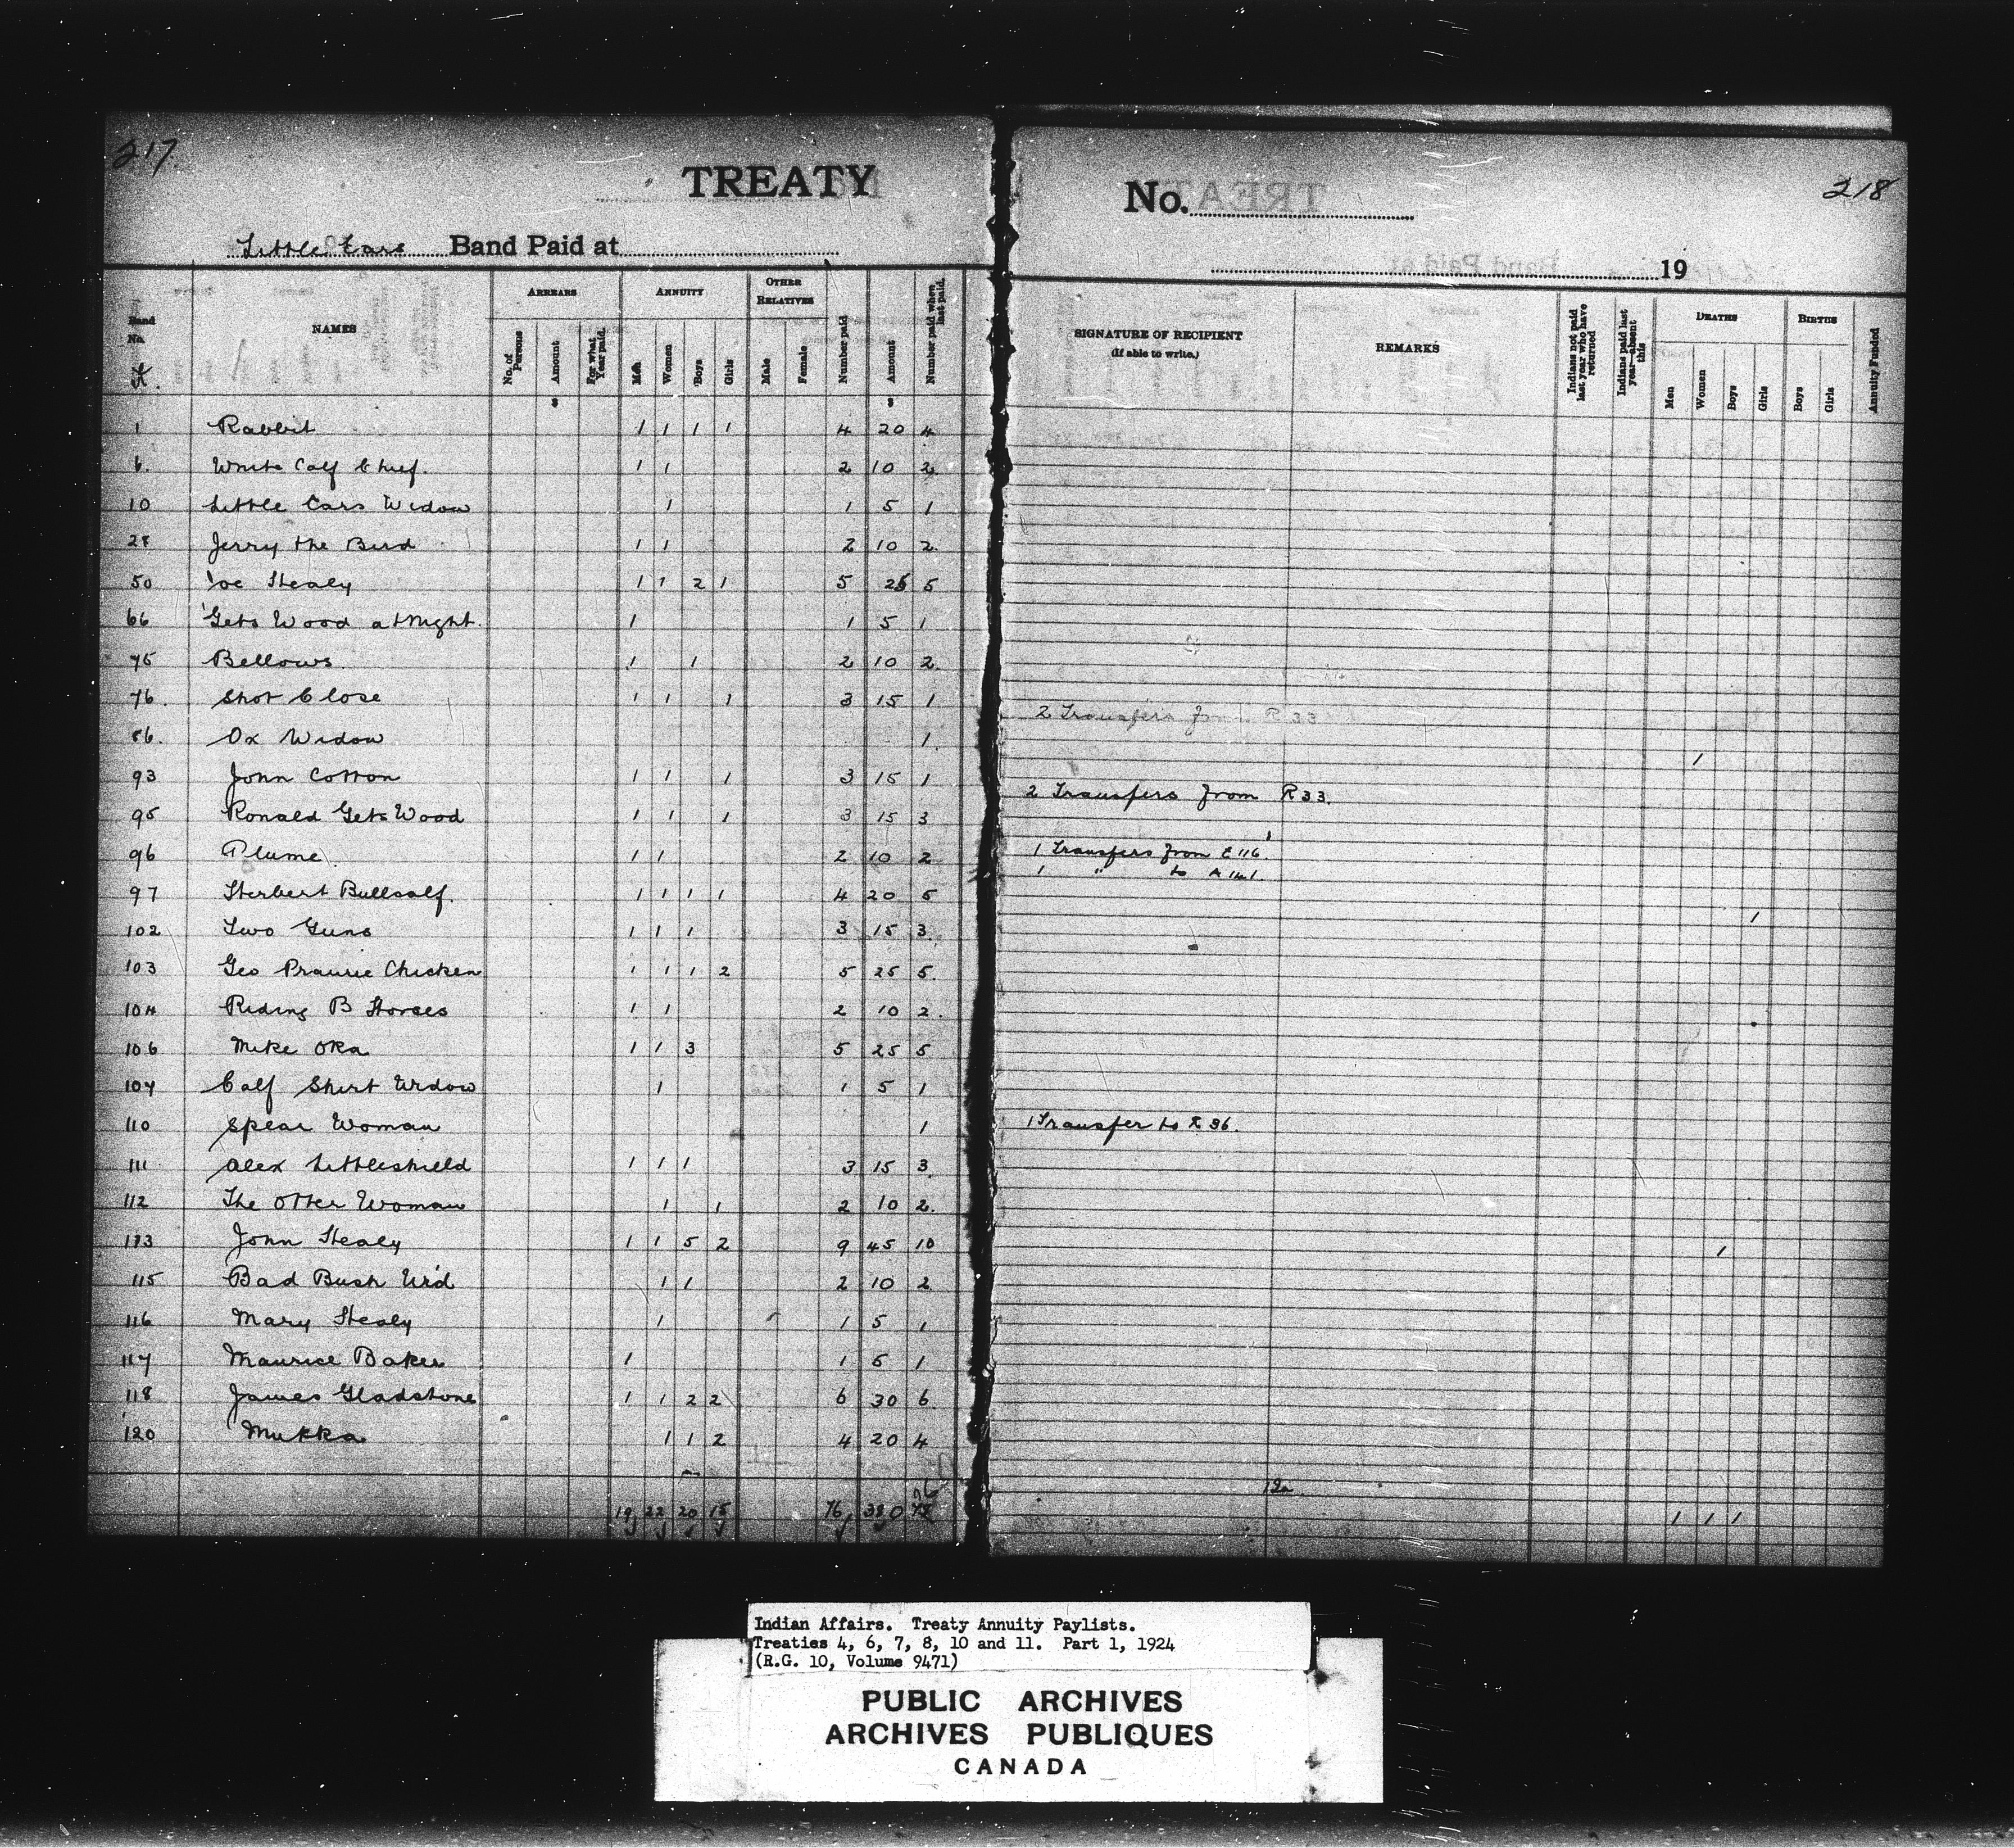 217
TREATY
No.
218
Little Ears Band Paid at
19
Band No.
NAMES
ARREARS
No. of Persons
Amount
For what Year paid.
ANNUITY
Men
Women
Boys
Girls
OTHER RELATIVES
Male
Female
Number paid
Amount
Number paid when last paid.
SIGNATURE OF RECIPIENT
(If able to write.)
REMARKS
Indians not paid last year who have returned
Indians paid last year—absent this
DEATHS
Men
Women
Boys
Girls
BIRTHS
Boys
Girls
Annuity Funded
1 Rabbit 1 1 1 1 4 20 4
6. White Calf Chief. 1 1 2 10 2
10 Little Ears Widow 1 1 5 1
28 Jerry the Bird 1 1 2 10 2
50 Joe Healy 1 1 2 1 5 25 5
66 Gets Wood at Night. 1 1 5 1
75 Bellows 1 1 2 10 2
76. Shot Close 1 1 1 3 15 1 2 Transfers from R 33
86. Ox Widow 1 1
93 John Cotton 1 1 1 3 15 1 2 Transfers from R 33.
95 Ronald Gets Wood 1 1 1 3 15 3
96 Plume. 1 1 2 10 2 1 Transfers from E 116
1 " to A 141.
97 Herbert Bullcalf. 1 1 1 1 4 20 5 1
102 Two Guns 1 1 1 3 15 3
103 Geo Prairie Chicken 1 1 1 2 5 25 5
104 Riding B Horses 1 1 2 10 2
106 Mike Oka 1 1 3 5 25 5
107 Calf Shirt Widow 1 1 5 1
110 Spear Woman 1 1 Transfer to R 36.
111 Alex Littleshield 1 1 1 3 15 3
112 The Otter Woman 1 1 2 10 2
113 John Healy 1 1 5 2 9 45 10 1
115 Bad Bush Wd 1 1 2 10 2
116 Mary Healy 1 1 5 1
117 Maurice Baker 1 1 5 1
118 James Gladstone 1 1 2 2 6 30 6
120 Mukka 1 1 2 4 20 4
19 22 20 15 76 380 1 1 1
Indian Affairs. Treaty Annuity Paylists.
Treaties 4, 6, 7, 8, 10 and 11. Part 1, 1924
(R.G. 10, Volume 9471)
PUBLIC ARCHIVES
ARCHIVES PUBLIQUES
CANADA